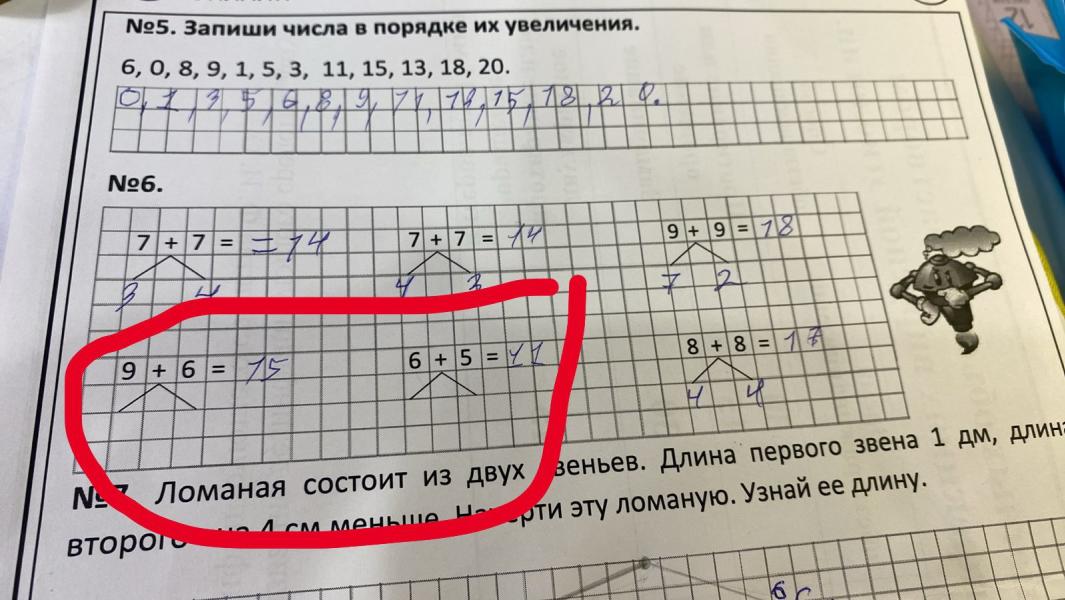 №5. Запиши числа в порядке их увеличения.
6, 0, 8, 9, 1, 5, 3, 11, 15, 13, 18, 20.
0, 1, 3, 5, 6, 8, 9, 11, 13, 15, 18, 20.
№6.
7 + 7 = = 14 7 + 7 = 14 9 + 9 = 18
3 4 4 3 7 2
9 + 6 = 15 6 + 5 = 11 8 + 8 =
4 4
№7 Ломаная состоит из двух звеньев. Длина первого звена 1 дм, длина
второго на 4 см меньше. Начерти эту ломаную. Узнай ее длину.
6